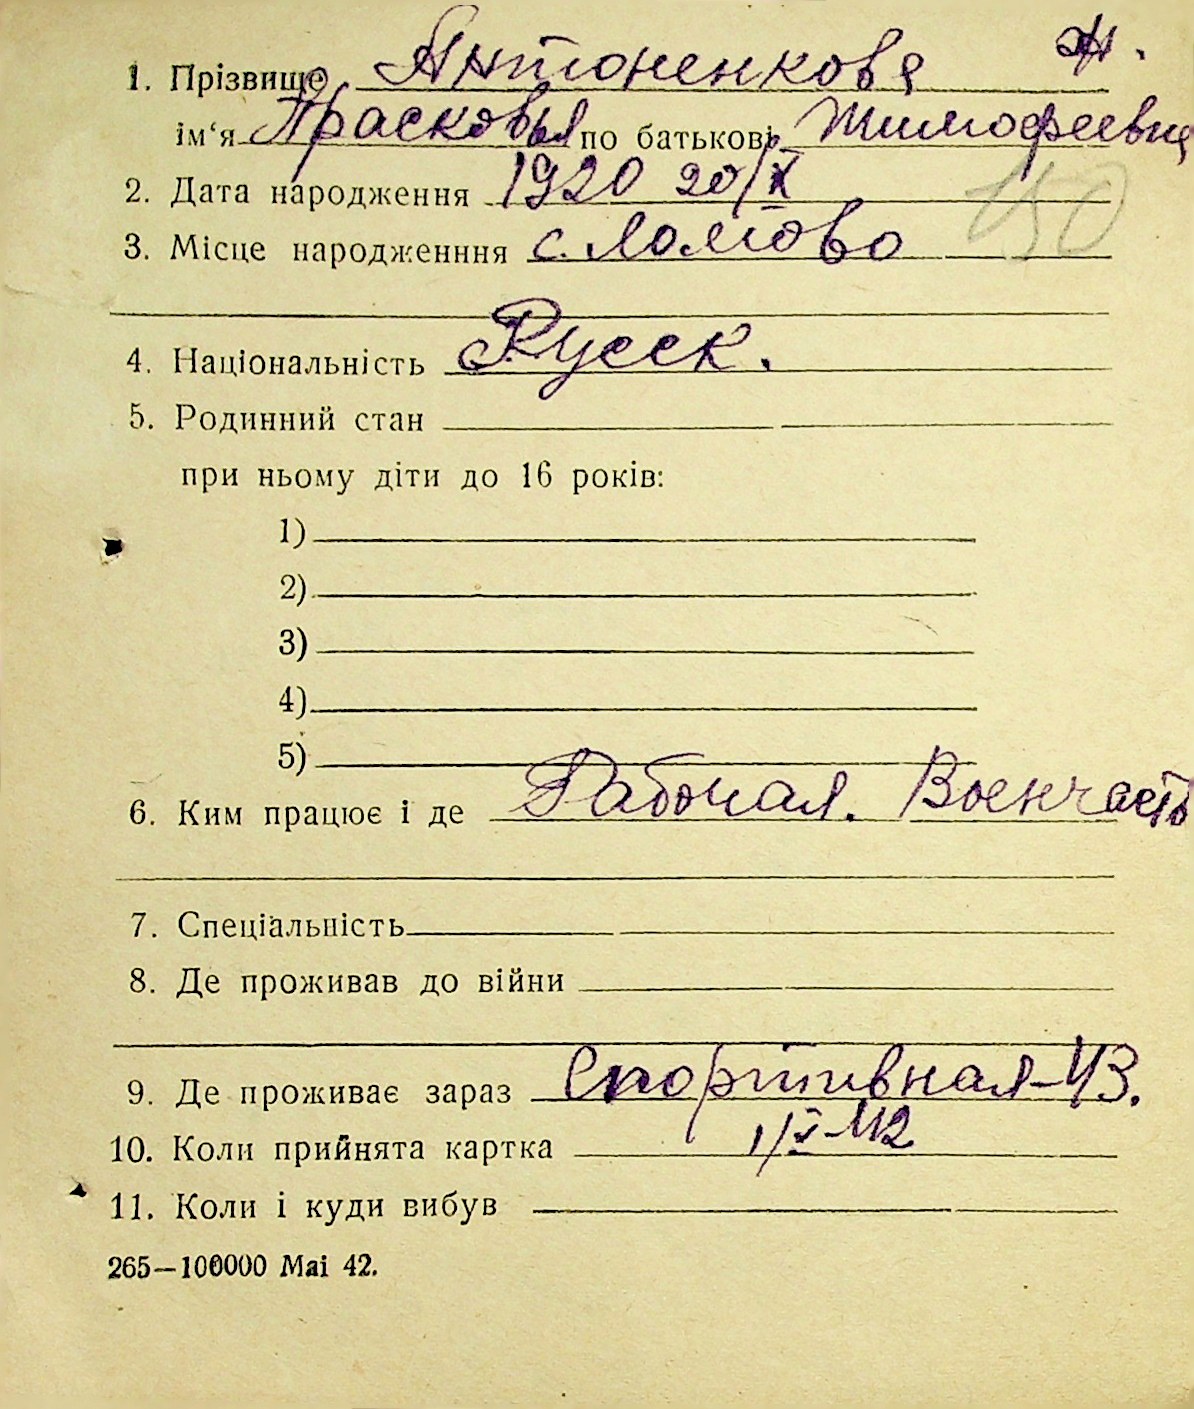 1. Прізвище Антоненкова Ж.
ім‘я Прасковья по батькові Тимофеевна
2. Дата народження 1920 20/X
3. Місце народженння с. Ломово
150
4. Національність Русск.
5. Родинний стан
при ньому діти до 16 років:
1)
2)
3)
4)
5)
6. Ким працює і де Рабочая. Военчасть
7. Спеціальність
8. Де проживав до війни
9. Де проживає зараз Спортивная-43.
10. Коли прийнята картка 1/X-42
11. Коли і куди вибув
265—100000 Mai 42.